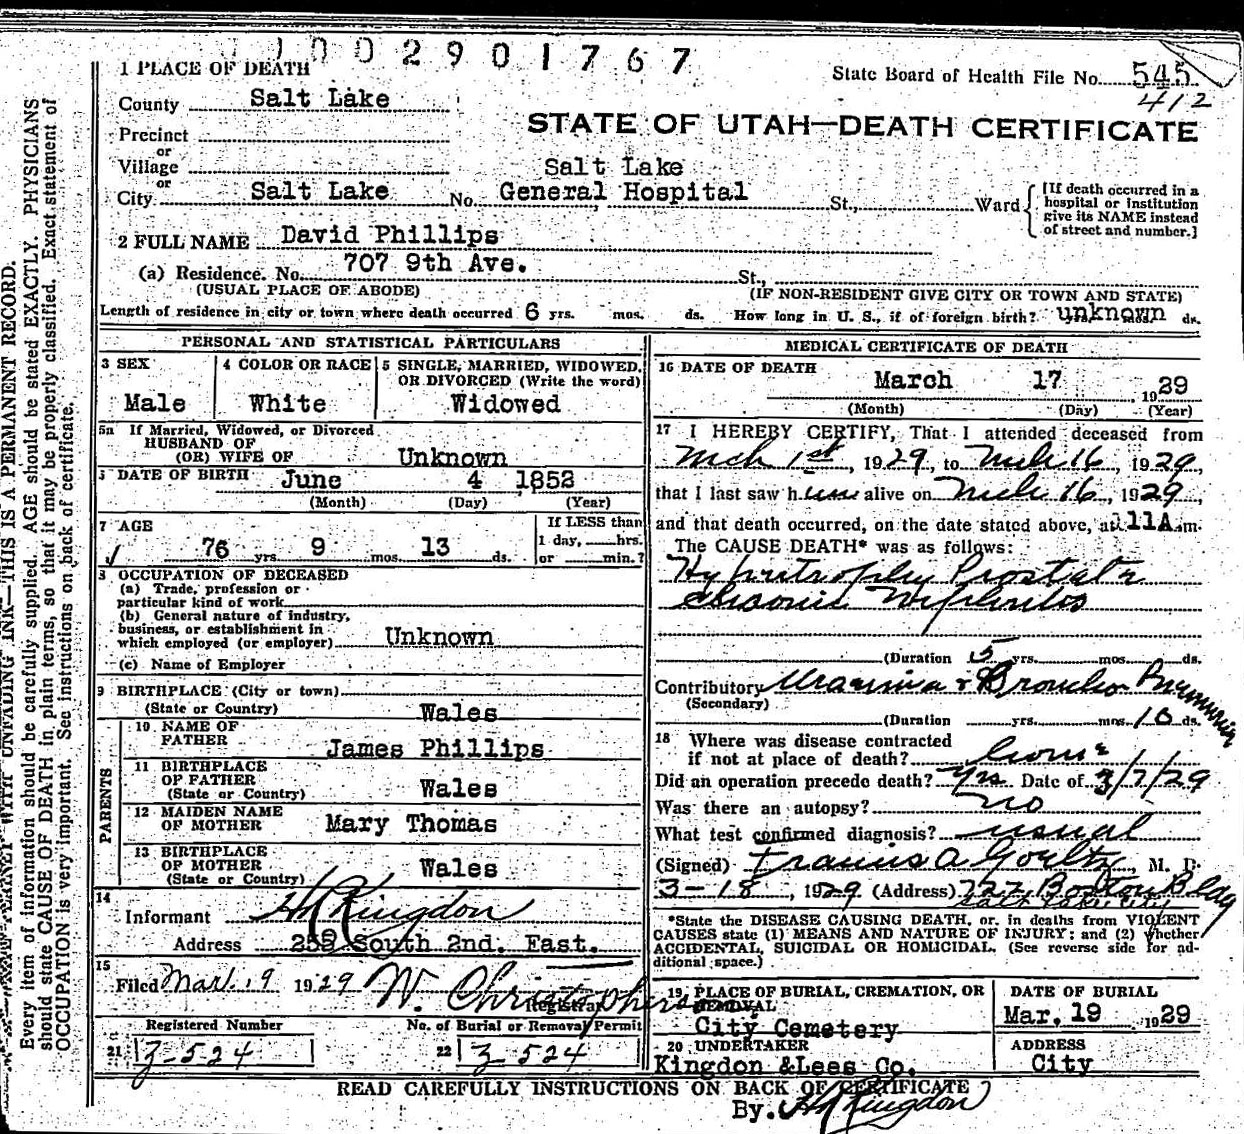 1002901767
1 PLACE OF DEATH
State Board of Health File No. 545
412
County Salt Lake
STATE OF UTAH—DEATH CERTIFICATE
Precinct
or
Village
Salt Lake
or
City Salt Lake No. General Hospital St., Ward
[If death occurred in a hospital or institution give its NAME instead of street and number.]
2 FULL NAME David Phillips
(a) Residence. No. 707 9th Ave. St.,
(USUAL PLACE OF ABODE) (IF NON-RESIDENT GIVE CITY OR TOWN AND STATE)
Length of residence in city or town where death occurred 6 yrs. mos. ds. How long in U. S., if of foreign birth? unknown ds.
PERSONAL AND STATISTICAL PARTICULARS
3 SEX
Male
4 COLOR OR RACE
White
5 SINGLE, MARRIED, WIDOWED,
OR DIVORCED (Write the word)
Widowed
5a If Married, Widowed, or Divorced
HUSBAND OF
(OR) WIFE OF Unknown
DATE OF BIRTH June 4 1852
(Month) (Day) (Year)
7 AGE
76 yrs. 9 mos. 13 ds.
If LESS than
1 day, hrs.
or min.?
8 OCCUPATION OF DECEASED
(a) Trade, profession or
particular kind of work
(b) General nature of industry,
business, or establishment in
which employed (or employer) Unknown
(c) Name of Employer
9 BIRTHPLACE (City or town)
(State or Country) Wales
PARENTS
10 NAME OF
FATHER James Phillips
11 BIRTHPLACE
OF FATHER
(State or Country) Wales
12 MAIDEN NAME
OF MOTHER Mary Thomas
13 BIRTHPLACE
OF MOTHER
(State or Country) Wales
14
Informant H R Kingdon
Address South 2nd. East.
15
Filed Mar. 19 1929 W. Christopherson
Registrar
Registered Number
21 Z-524
No. of Burial or Removal Permit
22 Z 524
MEDICAL CERTIFICATE OF DEATH
16 DATE OF DEATH
March 17 1929
(Month) (Day) (Year)
17 I HEREBY CERTIFY, That I attended deceased from
Mch 1st, 1929, to Mch 16, 1929
that I last saw him alive on Mch 16, 1929,
and that death occurred, on the date stated above, at 11A.m.
The CAUSE DEATH* was as follows:
Hypertrophy Prostate
chronic Nephritis
(Duration 5 yrs. mos. ds.
Contributory Uraemia & Broncho Pneumonia
(Secondary)
(Duration yrs. mos. 10 ds.
18 Where was disease contracted
if not at place of death? home
Did an operation precede death? yes Date of 3/7/29
Was there an autopsy? no
What test confirmed diagnosis? usual
(Signed) Francis A Goeltz, M. D.
3-18, 1929 (Address) 722 Boston Bldg
Salt Lake City
*State the DISEASE CAUSING DEATH, or, in deaths from VIOLENT
CAUSES state (1) MEANS AND NATURE OF INJURY; and (2) whether
ACCIDENTAL, SUICIDAL OR HOMICIDAL. (See reverse side for ad-
ditional space.)
19 PLACE OF BURIAL, CREMATION, OR
REMOVAL
City Cemetery
DATE OF BURIAL
Mar. 19 1929
20 UNDERTAKER
Kingdon &Lees Co.
ADDRESS
City
READ CAREFULLY INSTRUCTIONS ON BACK OF CERTIFICATE
By. H R Kingdon
UNFADING INK—THIS IS A PERMANENT RECORD.
Every item of information should be carefully supplied. AGE should be stated EXACTLY. PHYSICIANS
should state CAUSE OF DEATH in plain terms, so that it may be properly classified. Exact statement of
OCCUPATION is very important. See instructions on back of certificate.